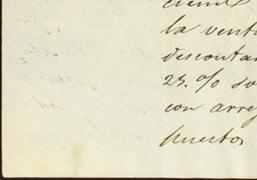 la vent
descontan
25.% so
con arreg
puerto